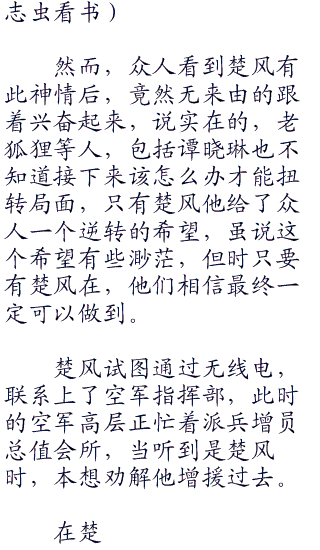 志虫看书）
然而，众人看到楚风有
此神情后，竟然无来由的跟
着兴奋起来，说实在的，老
狐狸等人，包括谭晓琳也不
知道接下来该怎么办才能扭
转局面，只有楚风他给了众
人一个逆转的希望，虽说这
个希望有些渺茫，但时只要
有楚风在，他们相信最终一
定可以做到。
楚风试图通过无线电，
联系上了空军指挥部，此时
的空军高层正忙着派兵增员
总值会所，当听到是楚风
时，本想劝解他增援过去。
在楚